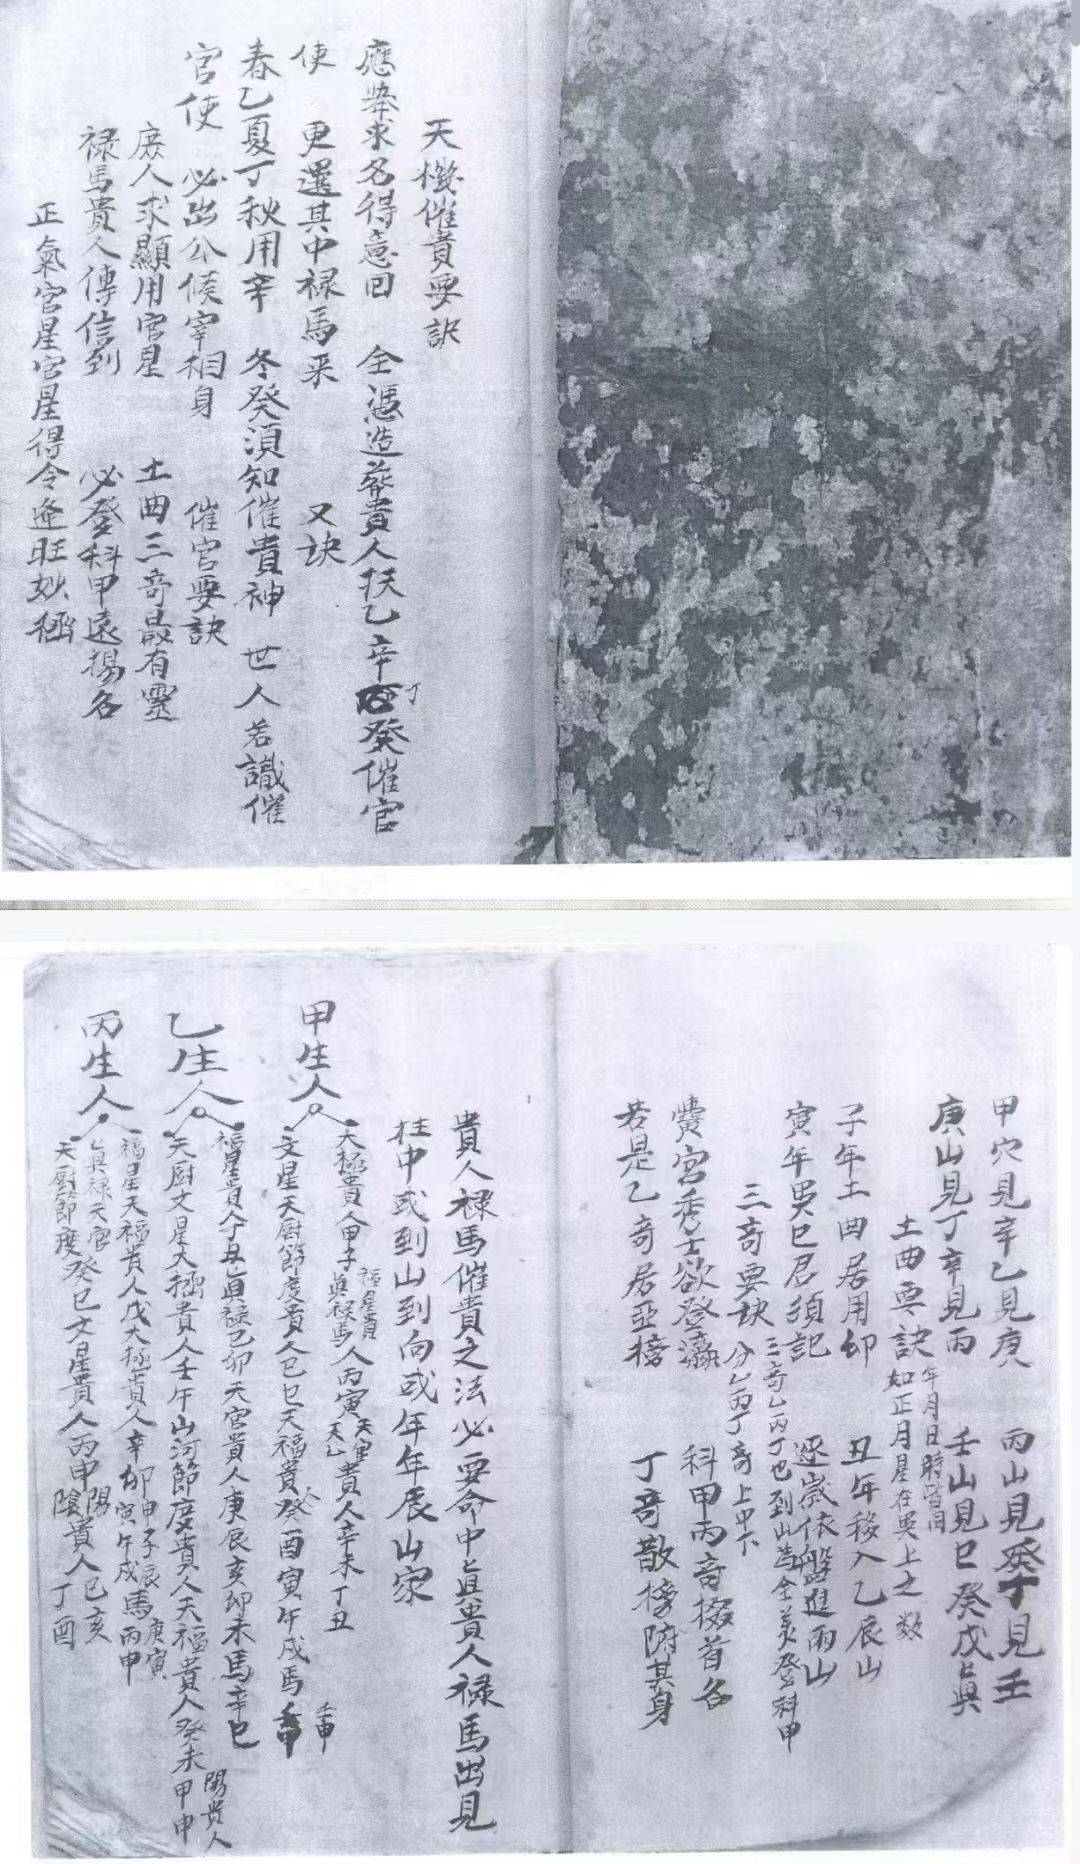 天機催貴要訣
應举求名得意回　全憑造葬貴人扶乙辛丁癸催官
使　更選其中禄馬来　又訣
春乙夏丁秋用辛　冬癸須知催貴神　世人若識催
官使　必出公侯宰相身　催官要訣
庶人求顯用官星　土曲三竒最有靈
禄馬貴人傳信到　必登科甲遠揚名
正氣官星官星得令逢旺妙極
甲穴見辛乙見庚　丙山見癸丁見壬
庚山見丁辛見丙　壬山見巳癸戊眞
土曲要訣 年月日時皆同 如正月星在巽上之数
子年土曲居用卯　丑年移入乙辰山
寅年巽巳君須記　逐歲依盤進兩山
三竒要訣 三竒乙丙丁也到山為全美登科甲 分乙丙丁竒上中下
黌宮秀士欲登瀛　科甲丙竒掇首名
若是乙竒居亞榜　丁竒散榜附其身
貴人禄馬催貴之法必要命中眞貴人禄馬出見
柱中或到山到向或年年辰山家
甲生人
天極貴人甲子 福星貴人 眞禄馬丙寅 天官貴人辛未丁丑 天乙
文星天厨節度貴人巳巳天福貴人癸酉寅午戌馬壬申
乙生人
福星貴人丁丑眞禄己卯天官貴人庚辰亥卯未馬辛巳
天厨文星大極貴人壬午山河節度貴人天福貴人癸未甲申 陽貴人
丙生人
福星天福貴人戊大極貴人辛卯 甲子辰 寅午戌馬 庚寅 丙申
眞禄天官
天厨節度癸巳文星貴人丙申 陽 陰貴人 己亥 丁酉